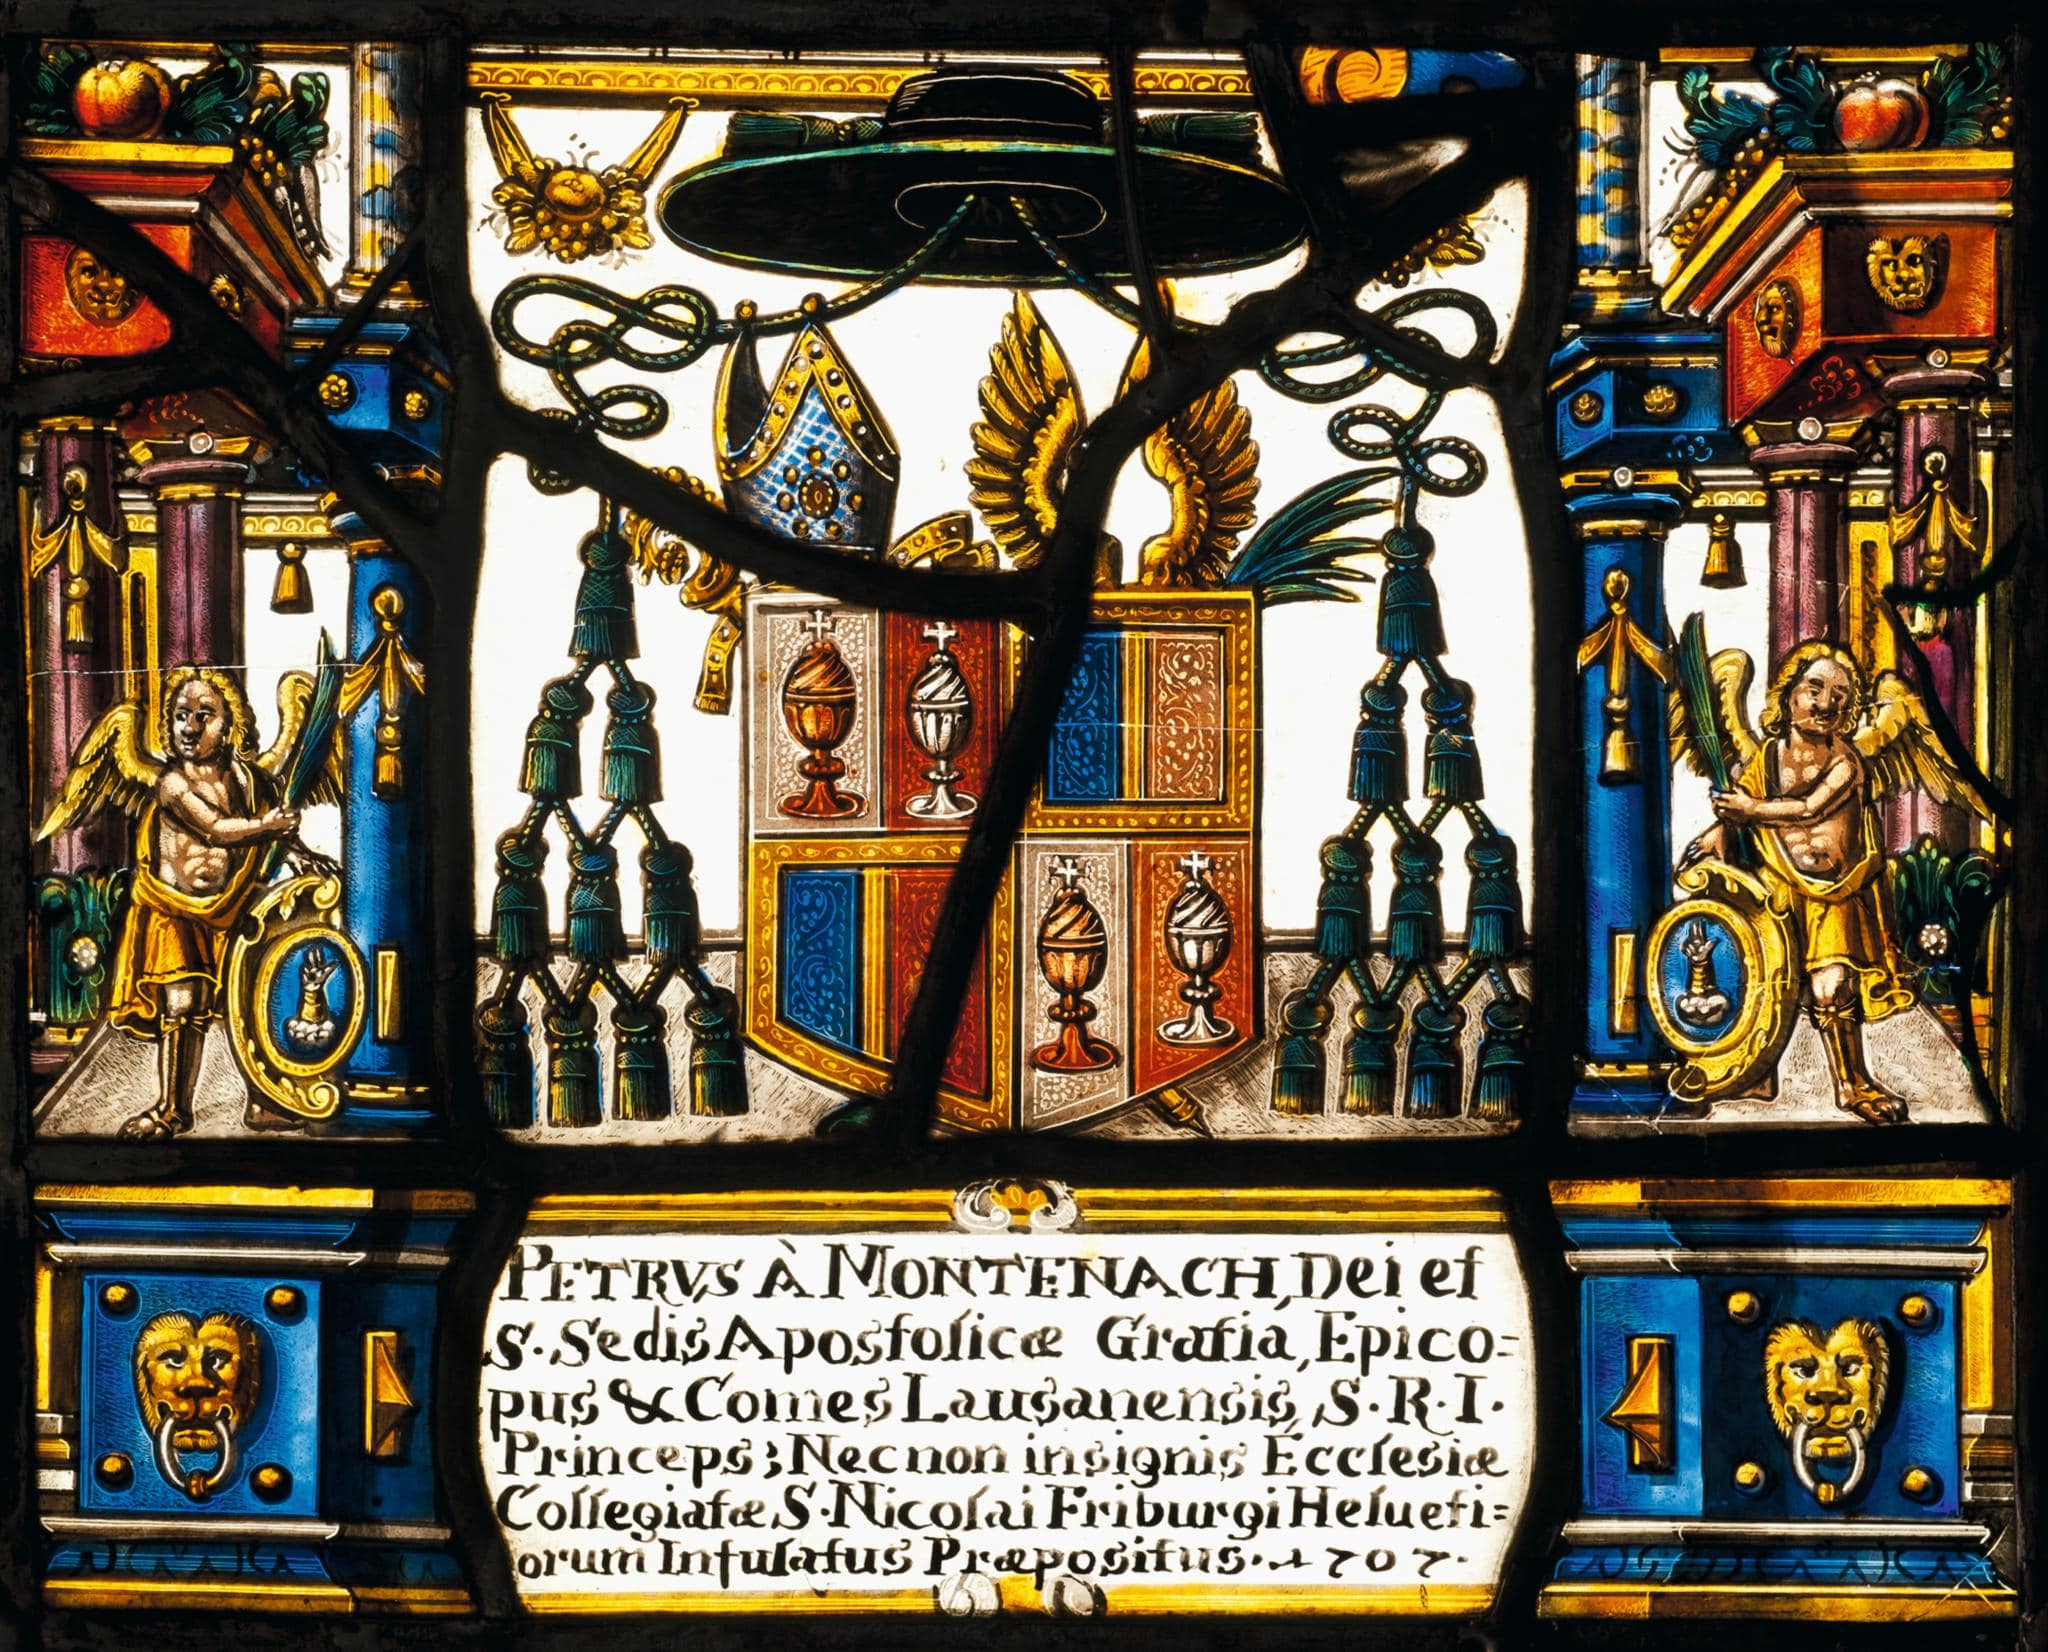 PETRVS À MONTENACH, Dei et
S. Sedis Apostolicæ Gratia, Epico=
pus & Comes Lausanensis, S. R. I.
Princeps; Necnon insignis Ecclesiæ
Collegiatæ S. Nicolai Friburgi Helueti=
orum Infulatus Præpositus. 1707.